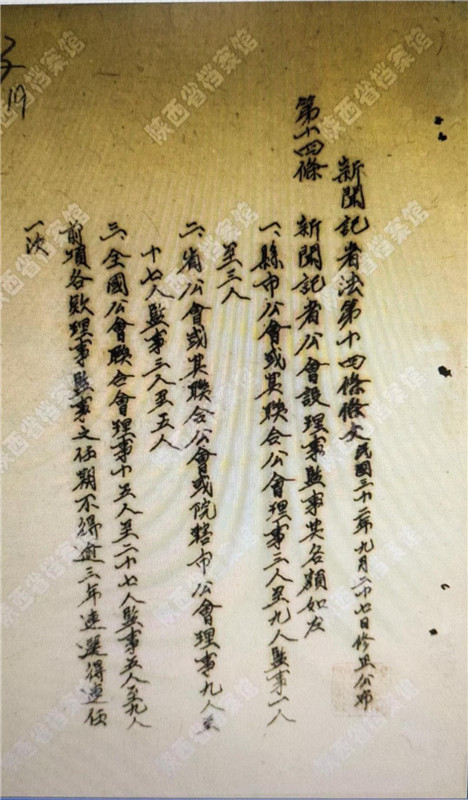 新聞記者法第十四條條文民國三十二年九月二十七日修正公布
第十四條 新聞記者公會設理事監事其名額如左
一、縣市公會或其聯合公會理事三人至九人監事一人
至三人
二、省公會或其聯合公會或院轄市公會理事九人至
十七人監事三人至五人
三、全國公會聯合會理事十五人至二十七人監事五人至九人
前項各款理事監事之任期不得逾三年連選得連任
一次
陕西省档案馆